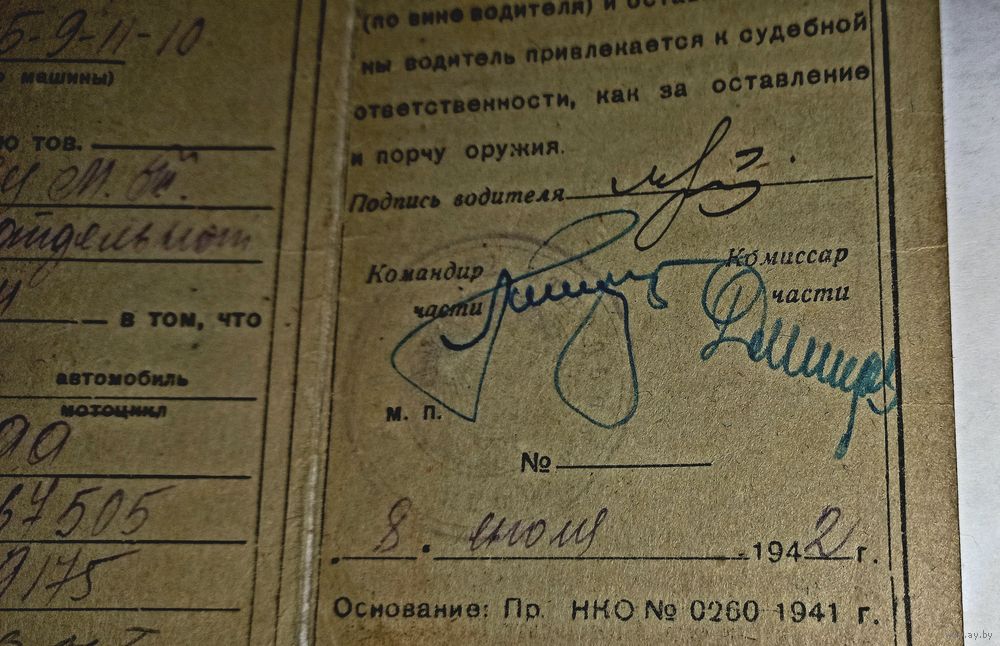 5-9-11-10
машины)
тов.
в том, что
автомобиль
мотоцикл
67505
9175
(по вине водителя) и
ны водитель привлекается к судебной
ответственности, как за оставление
и порчу оружия.
Подпись водителя
Командир Комиссар
части части
М. П.
№
8. июля 1942 г.
Основание: Пр. НКО № 0260 1941 г.
ay.by